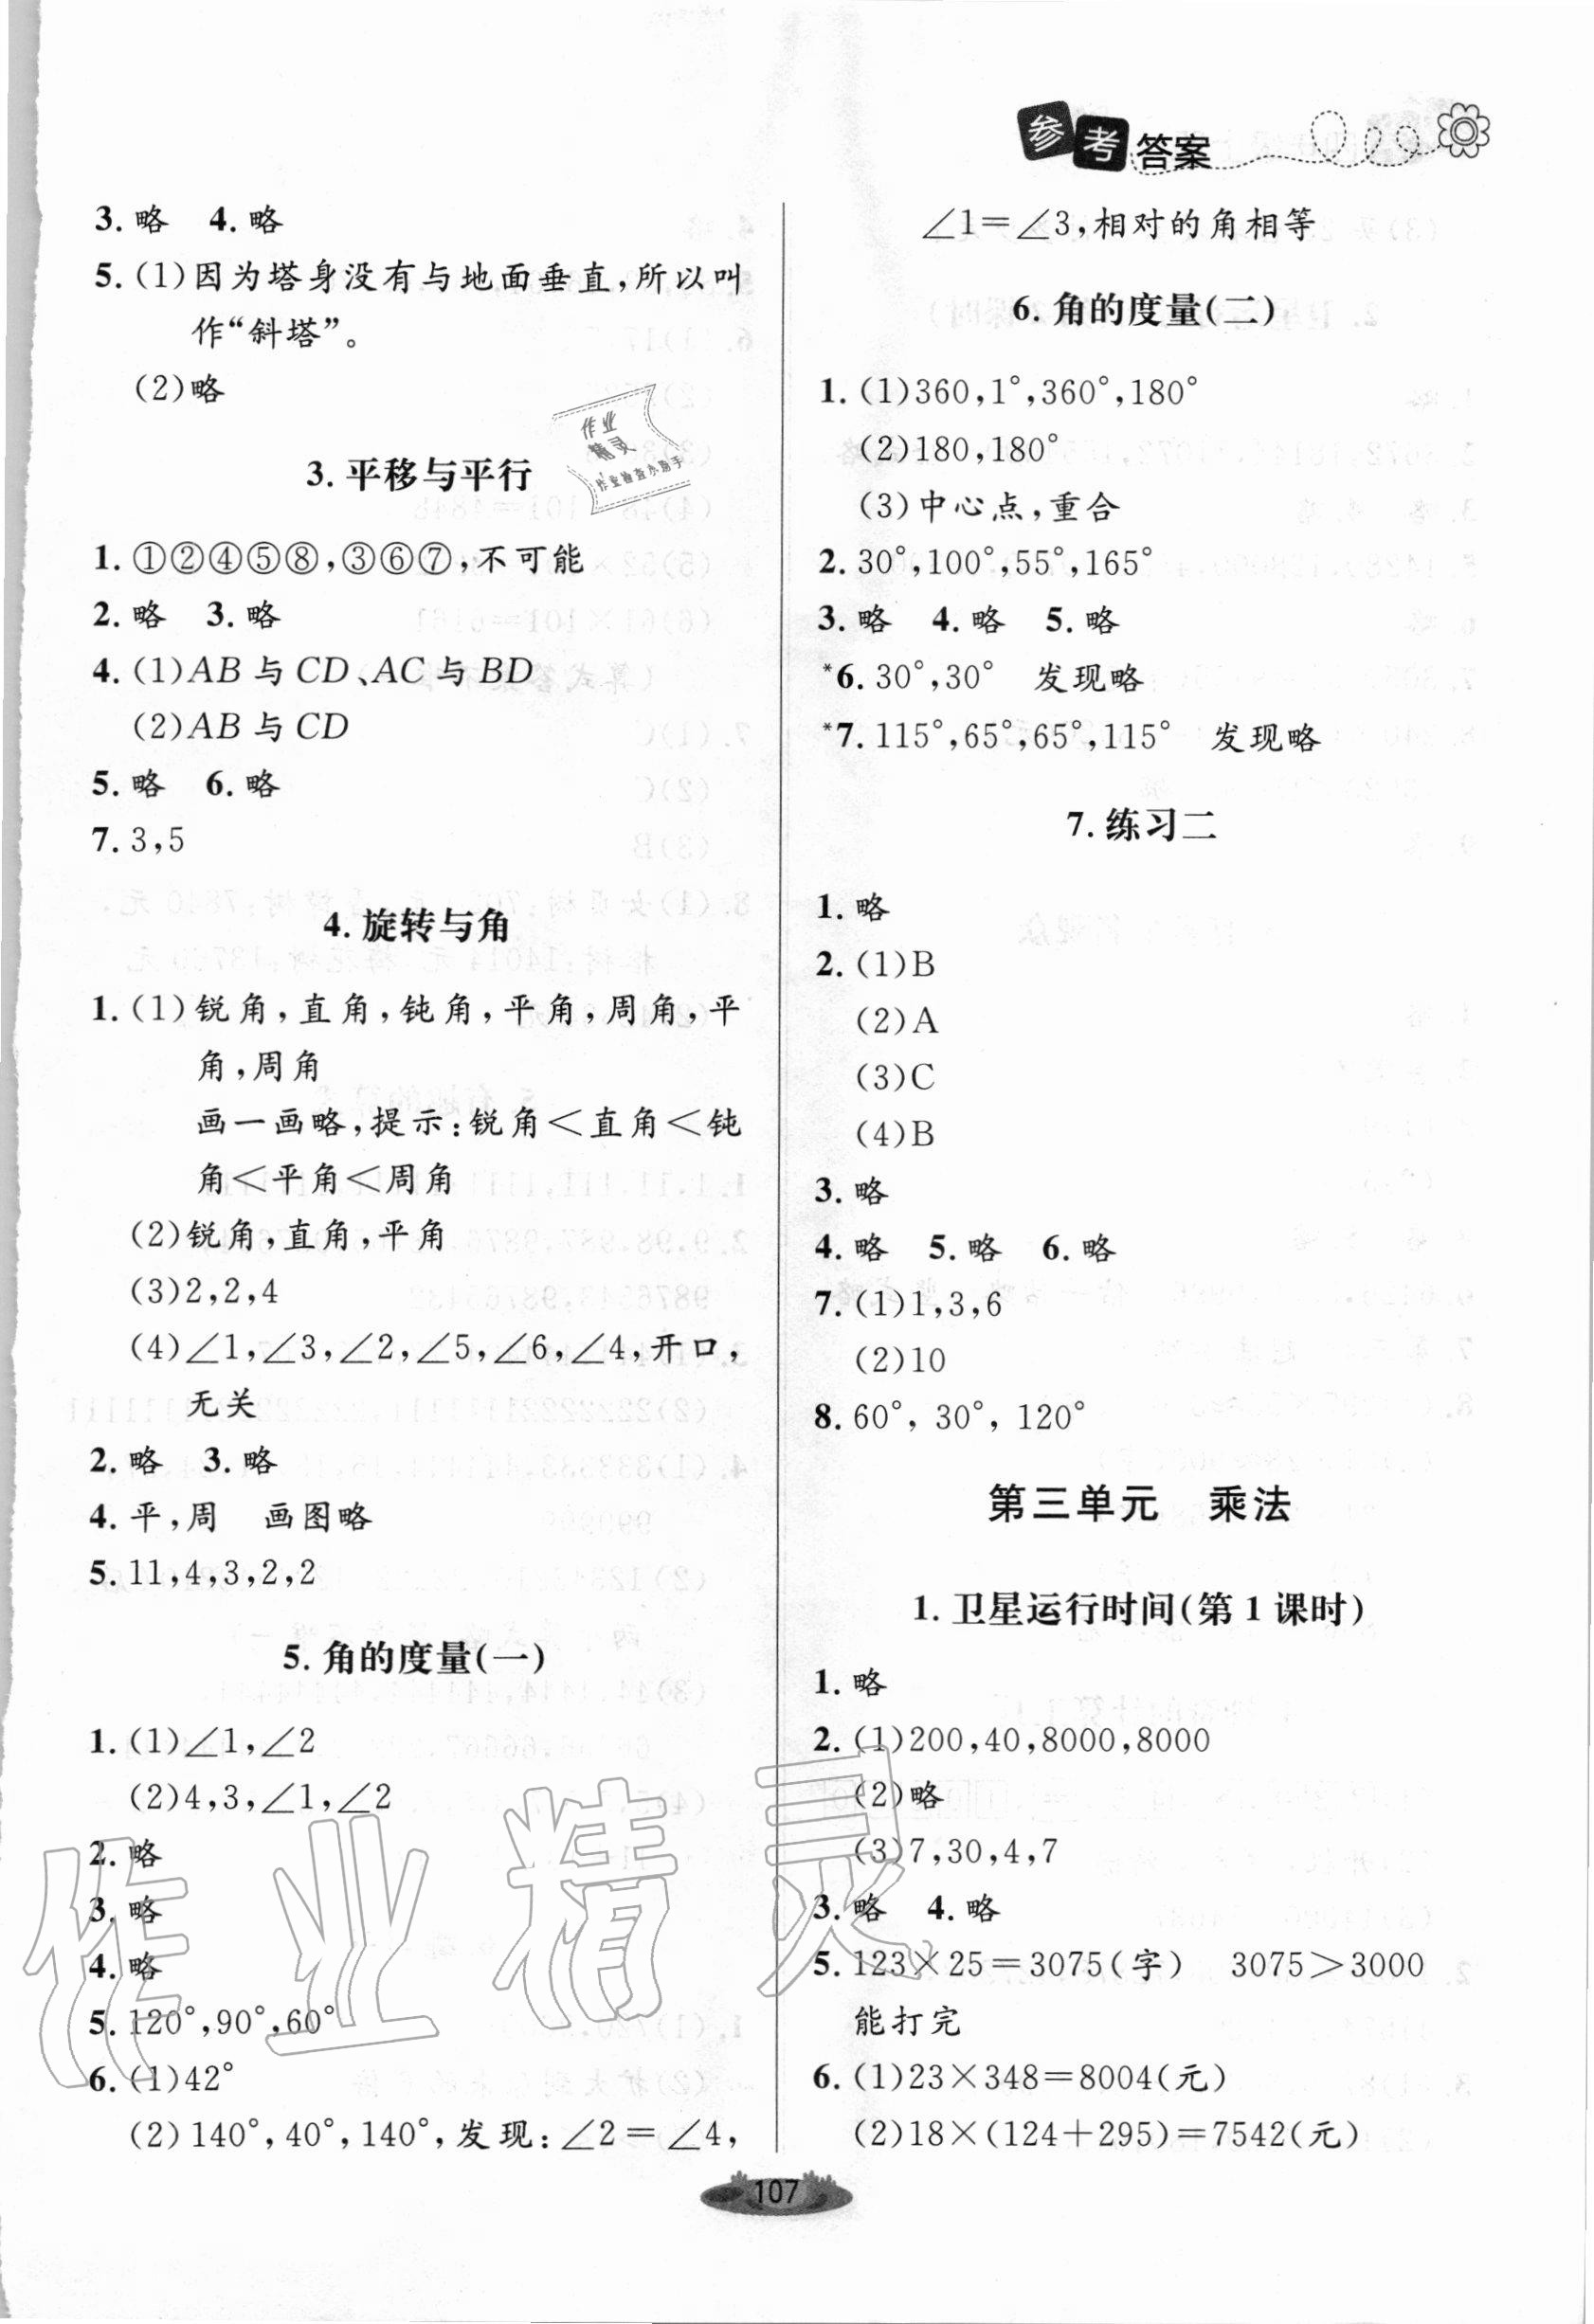 参考答案
3. 略 4. 略
5. (1)因为塔身没有与地面垂直,所以叫
作“斜塔”。
(2)略
3. 平移与平行
1. ①②④⑤⑧,③⑥⑦,不可能
2. 略 3. 略
4. (1)AB 与 CD、AC 与 BD
(2)AB 与 CD
5. 略 6. 略
7. 3,5
4. 旋转与角
1. (1)锐角,直角,钝角,平角,周角,平
角,周角
画一画略,提示:锐角<直角<钝
角<平角<周角
(2)锐角,直角,平角
(3)2,2,4
(4)∠1,∠3,∠2,∠5,∠6,∠4,开口,
无关
2. 略 3. 略
4. 平,周 画图略
5. 11,4,3,2,2
5. 角的度量(一)
1. (1)∠1,∠2
(2)4,3,∠1,∠2
2. 略
3. 略
4. 略
5. 120°,90°,60°
6. (1)42°
(2)140°,40°,140°,发现:∠2=∠4,
∠1=∠3,相对的角相等
6. 角的度量(二)
1. (1)360,1°,360°,180°
(2)180,180°
(3)中心点,重合
2. 30°,100°,55°,165°
3. 略 4. 略 5. 略
*6. 30°,30° 发现略
*7. 115°,65°,65°,115° 发现略
7. 练习二
1. 略
2. (1)B
(2)A
(3)C
(4)B
3. 略
4. 略 5. 略 6. 略
7. (1)1,3,6
(2)10
8. 60°, 30°, 120°
第三单元 乘法
1. 卫星运行时间(第 1 课时)
1. 略
2. (1)200,40,8000,8000
(2)略
(3)7,30,4,7
3. 略 4. 略
5. 123×25=3075(字) 3075>3000
能打完
6. (1)23×348=8004(元)
(2)18×(124+295)=7542(元)
107
作业
精灵
作业检查小助手
作业精灵